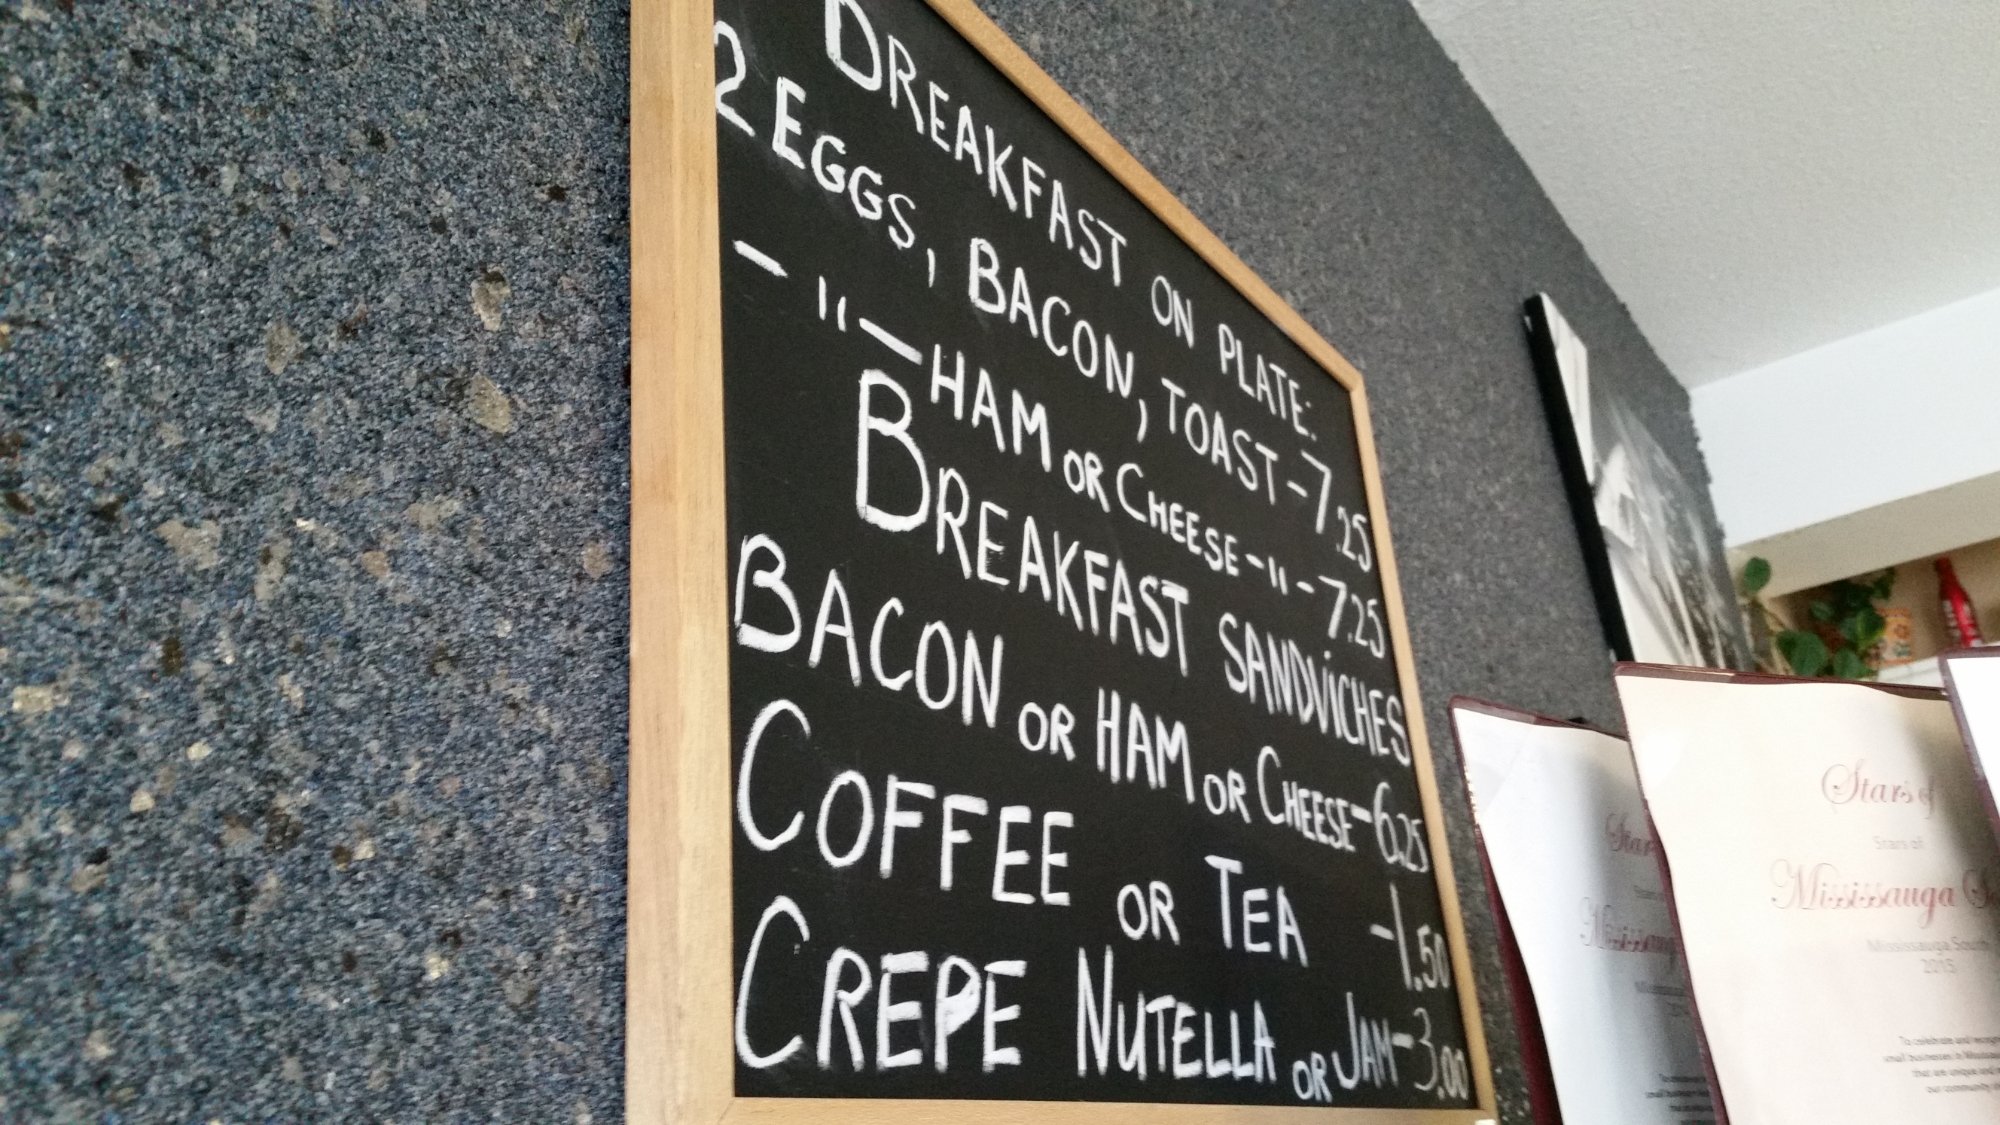 BREAKFAST ON PLATE:
2 EGGS, BACON, TOAST - 7.25
- " - HAM OR CHEESE - " - 7.25
BREAKFAST SANDVICHES
BACON OR HAM OR CHEESE - 6.25
COFFEE OR TEA - 1.50
CREPE NUTELLA OR JAM - 3.00
Stars of
Stars of
Mississauga
Mississauga South
2015
To celebrate and
small businesses in
that are unique and
our community